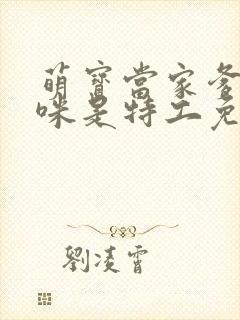 萌寶當家爹
咪是特工免
劉凌霄